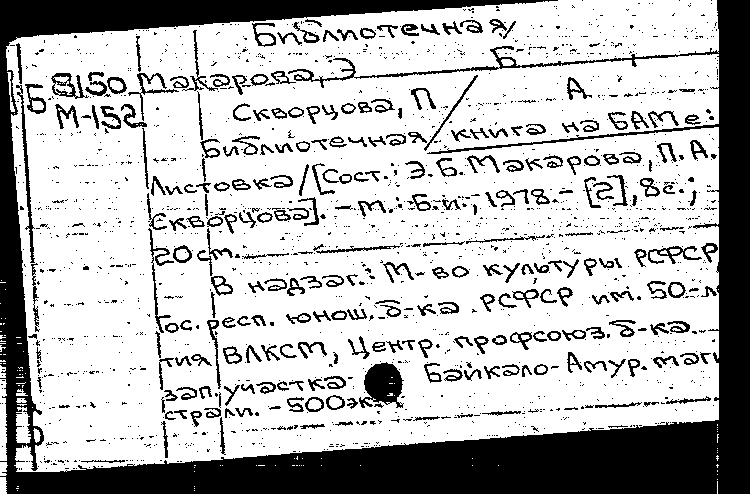 Библиотечная
Б
Б 8150 Макарова, Э
М-152 Скворцова, П А
Библиотечная книга на БАМе:
Листовка / [Сост.: Э.Б. Макарова, П.А.
Скворцова]. – М.: Б.и., 1978. – [2], 8с.;
20 см.
В надзаг.: М-во культуры РСФСР
Гос. респ. юнош. б-ка РСФСР им. 50-ле
тия ВЛКСМ, Центр. профсоюз. б-ка
зап. участка Байкало-Амур. маги
страли. – 500 эк